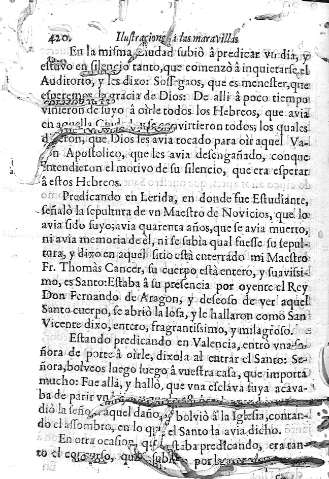 420. Ilustraciones à las maravillas
En la misma Ciudad subiò à predicar vn dia, y
estuvo en silencio tanto, que començò à inquietarse el
Auditorio, y les dixo: Sossegaos, que es menester, que
esperemos la gracia de Dios: De alli à poco tiempo
vinieron de suyo à oirle todos los Hebreos, que avia
en aquella Ciudad, y se convirtieron todos, los quales
dixeron, que Dios les avia tocado para oir aquel Va-
ron Apostolico, que les avia desengañado, conque
entendieron el motivo de su silencio, que era esperar
à estos Hebreos.
Predicando en Lerida, en donde fue Estudiante,
señalò la sepultura de vn Maestro de Novicios, que lo
avia sido suyo; avia quarenta años, que se avia muerto,
ni avia memoria de èl, ni se sabia qual fuesse su sepul-
tura, y dixo en aquel sitio està enterrado mi Maestro
Fr. Thomàs Cancer, su cuerpo està entero, y suavissi-
mo, es Santo: Estaba à su presencia por oyente el Rey
Don Fernando de Aragon, y deseoso de ver aquel
Santo cuerpo, se abriò la losa, y le hallaron como San
Vicente dixo, entero, fragrantissimo, y milagroso.
Estando predicando en Valencia, entrò vna se-
ñora de porte à oirle, dixola al entrar el Santo: Se-
ñora, bolveos luego luego à vuestra casa, que importa
mucho: Fue allà, y hallò, que vna esclava suya acava-
ba de parir vn
diò la señora aquel daño, y bolviò à la Iglesia, contan-
do el assombro, en lo que el Santo la avia dicho.
En otra ocasion, que estaba predicando, era tan-
to el concurso, que subiò por